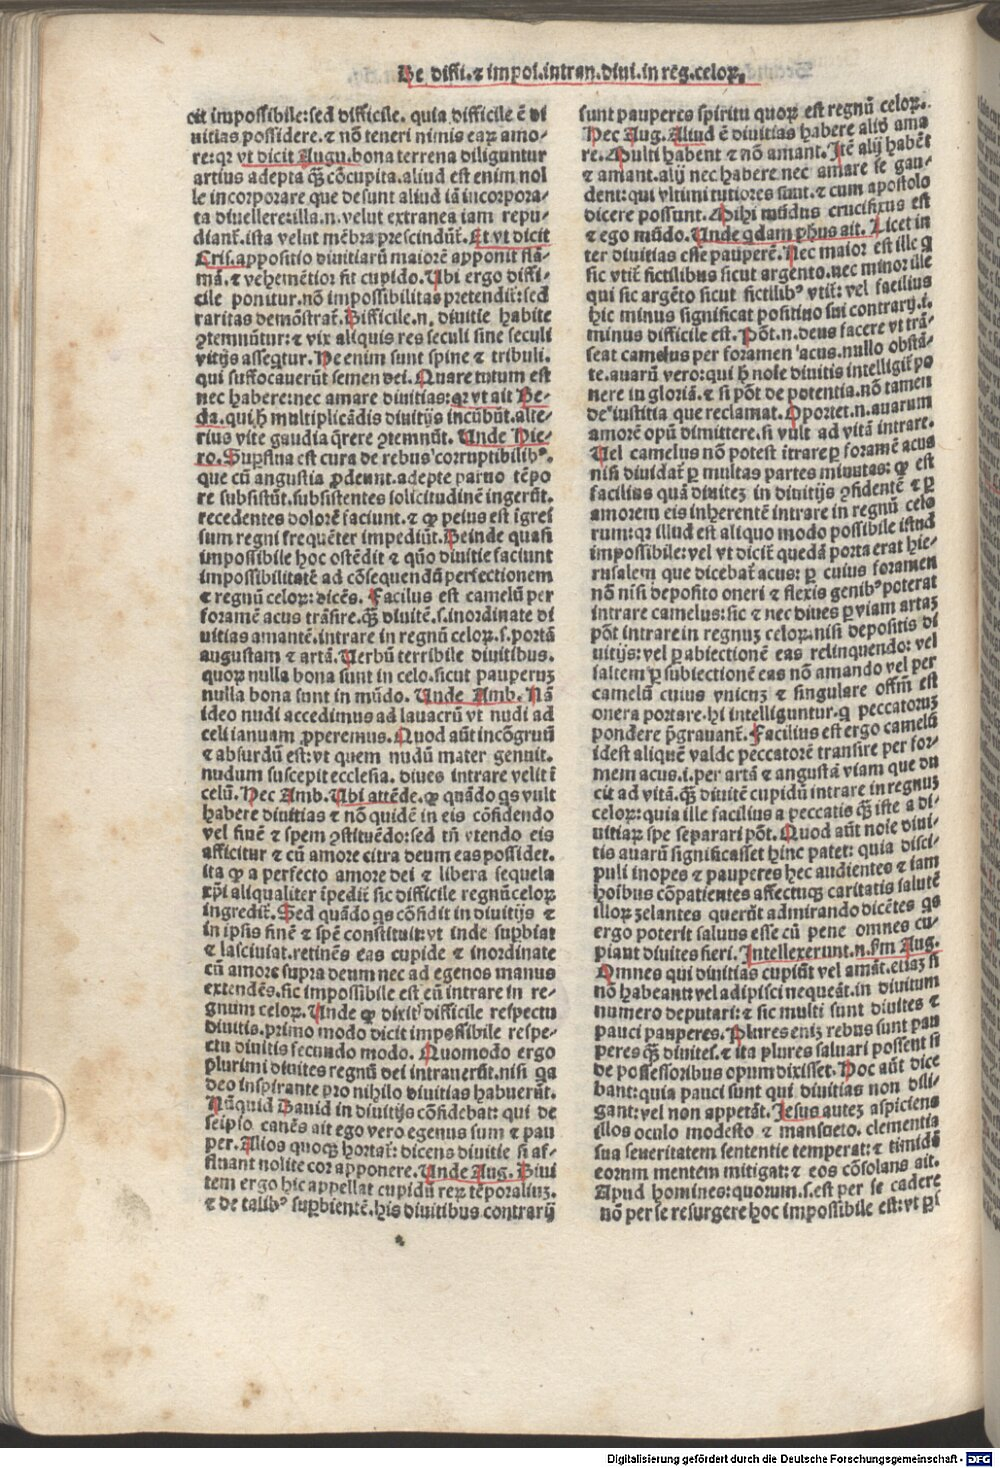 De diffi. ⁊ impol. intran. diui. in rēg. celoꝝ.
cit impossibile: sed difficile. quia difficile ē di
uitias possidere. ⁊ nō teneri nimis eaꝝ amo-
re: qꝛ vt dicit Augu. bona terrena diliguntur
artius adepta q̄ȝ cōcupita. aliud est enim nol
le incorporare que desunt aliud iā incorpora-
ta diuellere: illa. n. velut extranea iam repu-
diant̄. ista velut mēbra prescindūt̄. Et vt dicit
Cris. appositio diuitiarū maiorē apponit flā-
mā. ⁊ vehemētior fit cupido. Ubi ergo diffi-
cile ponitur. nō impossibilitas pretendit̄: sed
raritas demōstrat̄. Difficile. n. diuitie habite
ꝯtemnūtur: ⁊ vix aliquis res seculi sine seculi
vitijs asseqtur. He enim sunt spine ⁊ tribuli.
qui suffocauerūt semen dei. Quare tutum est
nec habere: nec amare diuitias: qꝛ vt ait Be-
da. qui h̄ multiplicādis diuitijs incūbūt. alte-
rius vite gaudia q̄rere ꝯtemnūt. Unde Hie-
ro. Suꝑflua est cura de rebus corruptibilibꝰ.
que cū angustia ꝓdeunt. adepte paruo tēpo
re subsistūt. subsistentes solicitudinē ingerūt.
recedentes dolorē faciunt. ⁊ ꝙ peius est igrei
sum regni frequēter impediūt. Deinde quasi
impossibile hoc ostēdit ⁊ quō diuitie faciunt
impossibilitatē ad cōsequendū perfectionem
⁊ regnū celoꝝ: dicēs. Facilius est camelū per
foramē acus trāsire. q̄ȝ diuitē. s. inordinate di
uitias amantē. intrare in regnū celoꝝ. s. portā
augustam ⁊ artā. Uerbū terribile diuitibus.
quoꝝ nulla bona sunt in celo. sicut pauperuȝ
nulla bona sunt in mūdo. Unde Amb. Nā
ideo nudi accedimus ad lauacrū vt nudi ad
celi ianuam ꝓperemus. Quod aūt incōgruū
⁊ absurdū est: vt quem nudū mater genuit.
nudum suscepit ecclesia. diues intrare velit ī
celū. Hec Amb. Ubi attēde. ꝙ quādo qs vult
habere diuitias ⁊ nō quidē in eis cōfidendo
vel finē ⁊ spem ꝯstituēdo: sed tn̄ vtendo eis
afficitur ⁊ cū amore citra deum eas possidet.
ita ꝙ a perfecto amore dei ⁊ libera sequela
xp̄i aliqualiter īpedit̄ sic difficile regnū celoꝝ
ingredit̄. Sed quādo qs cōfidit in diuitijs ⁊
in ipsis finē ⁊ spē constituit: vt inde suꝑbiat
⁊ lasciuiat. retinēs eas cupide ⁊ inordinate
cū amore supra deum nec ad egenos manus
extendēs. sic impossibile est eū intrare in re-
gnum celoꝝ. Unde ꝙ dixit difficile respectu
diuitis. primo modo dicit impossibile respe-
ctu diuitis secundo modo. Quomodo ergo
plurimi diuites regnū dei intrauerūt. nisi qa
deo inspirante pro nihilo diuitias habuerūt.
Nūquid Dauid in diuitijs cōfidebat: qui de
seipso canēs ait ego vero egenus sum ⁊ pau
per. Alios quoqȝ hortat̄: dicens diuitie si af-
fluant nolite cor apponere. Unde Aug. Diui
tem ergo hic appellat cupidū reꝝ tēporaliuȝ.
⁊ de talibꝰ suꝑbientē. his diuitibus contrarij
sunt pauperes spiritu quoꝝ est regnū celoꝝ.
Hec Aug. Aliud ē diuitias habere aliđ ama
re. Multi habent ⁊ nō amant. Itē alij habēt
⁊ amant. alij nec habere nec amare se gau-
dent: qui vltimi tutiores sunt. ⁊ cum apostolo
dicere possunt. Mihi mūdus crucifixus est
⁊ ego mūdo. Unde qdam ph̄us ait. Licet in
ter diuitias esse pauperē. Nec maior est ille q
sic vtit̄ fictilibus sicut argēto. nec minor ille
qui sic argēto sicut fictilibꝰ vtit̄: vel facilius
hic minus significat positiuo sui contrarij. i.
minus difficile est. Pōt. n. deus facere vt trā-
seat camelus per foramen acus. nullo obstā-
te. auarū vero: qui h̄ noīe diuitis intelligit̄ po
nere in gloriā. ⁊ si pōt de potentia. nō tamen
de iustitia que reclamat. Oportet. n. auarum
amorē opū dimittere. si vult ad vitā intrare.
Uel camelus nō potest ītrare ꝑ foramē acus
nisi diuidat̄ ꝑ multas partes minutas: ꝙ est
facilius quā diuiteȝ in diuitijs ꝯfidentē ⁊ ꝑ
amorem eis inherentē intrare in regnū celo
rum: qꝛ illud est aliquo modo possibile istud
impossibile: vel vt dicit̄ quedā porta erat hie-
rusalem que dicebat̄ acus: ꝑ cuius foramen
nō nisi deposito oneri ⁊ flexis genibꝰ poterat
intrare camelus: sic ⁊ nec diues ꝑ viam artaȝ
pōt intrare in regnuȝ celoꝝ. nisi depositis di
uitijs: vel ꝑ abiectionē eas relinquendo: vel
saltem ꝑ subiectionē eas nō amando vel per
camelū cuius vnicuȝ ⁊ singulare offm̄ est
onera portare. hi intelliguntur. q peccatoruȝ
pondere p̄grauant̄. Facilius est ergo camelū
idest aliquē valde peccatorē transire per for-
mem acus. i. per artā ⁊ angustā viam que du
cit ad vitā. q̄ȝ diuitē cupidū intrare in regnuȝ
celoꝝ: quia ille facilius a peccatis q̄ȝ iste a di-
uitiaꝝ spe separari pōt. Quod aūt noīe diui-
tis auarū significasset hinc patet: quia disci-
puli inopes ⁊ pauperes hec audientes ⁊ iam
hoībus cōpatientes affectuqȝ caritatis salutē
illoꝝ zelantes querūt admirando dicētes qs
ergo poterit saluus esse cū pene omnes cu-
piant diuites fieri. Intellexerunt. n. ẜm Aug.
Omnes qui diuitias cupiūt vel amāt. etiaȝ si
nō habeant: vel adipisci nequeāt. in diuitum
numero deputari: ⁊ sic multi sunt diuites ⁊
pauci pauperes. Plures eniȝ rebus sunt pau
peres q̄ȝ diuites. ⁊ ita plures saluari possent si
de possessoribus opum dixisset. Hoc aūt dice
bant: quia pauci sunt qui diuitias non dili-
gant: vel non appetāt. Jesus auteȝ aspiciens
illos oculo modesto ⁊ mansueto. clementia
sua seueritatem sententie temperat: ⁊ timidū
eorum mentem mitigat: ⁊ eos cōsolans ait.
Apud homines: quorum. s. est per se cadere
nō per se resurgere hoc impossibile est: vt ꝑ
Digitalisierung gefördert durch die Deutsche Forschungsgemeinschaft - DFG